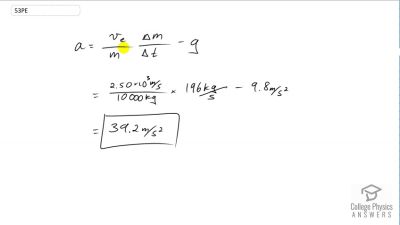 53PE
a = v_e/m Δm/Δt - g
= 2.50×10³ m/s / 10000 kg × 196 kg/s - 9.8 m/s²
= 39.2 m/s²
College Physics
ANSWERS